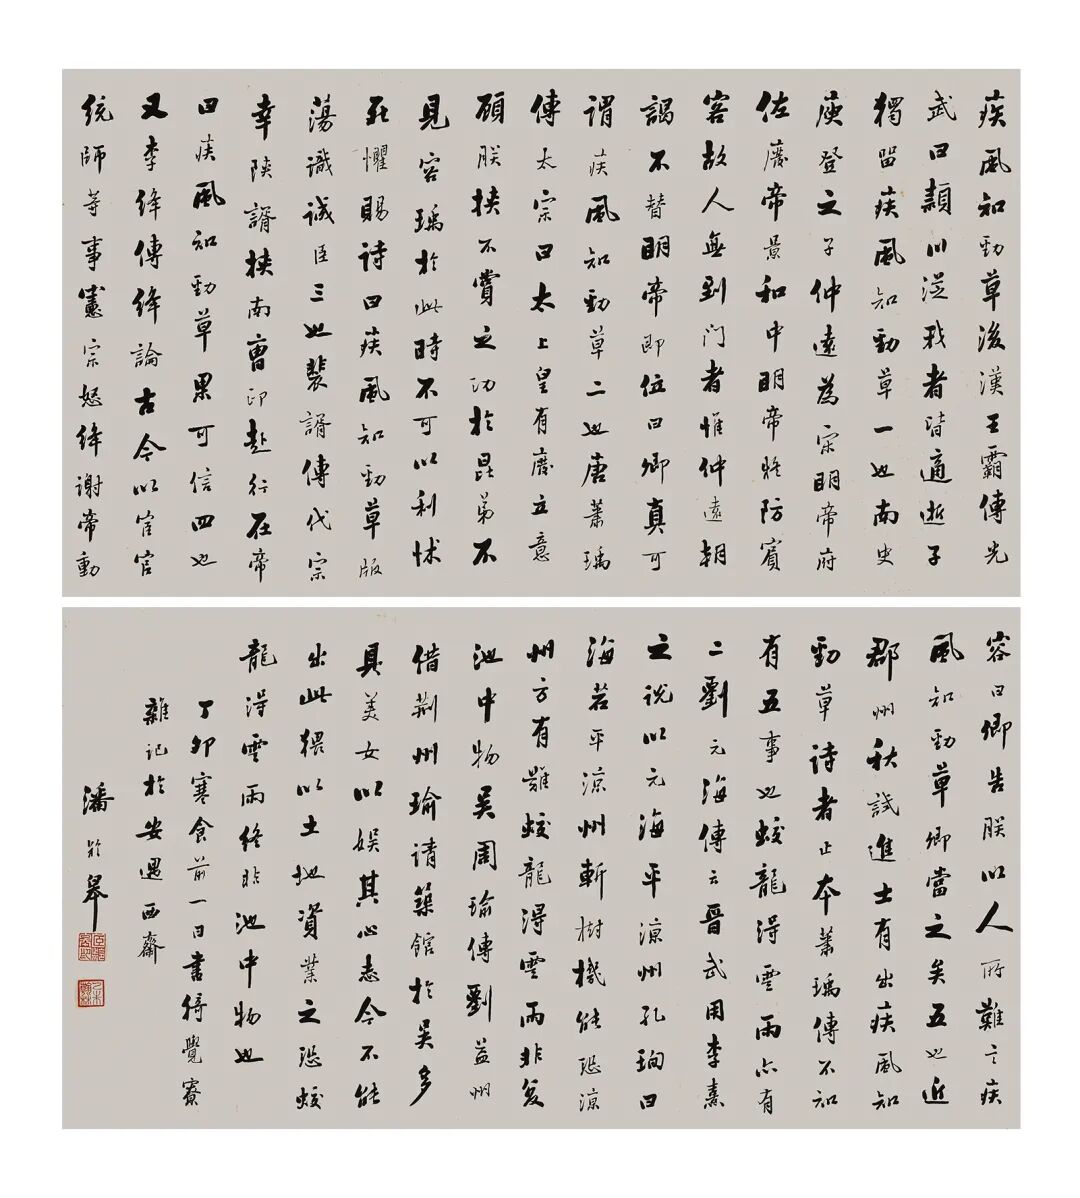 疾風知勁草後漢王霸傳光
武曰潁川從我者皆適逝子
獨留疾風知勁草一也南史
庾登之子仲遠為宋明帝府
佐廢帝景和中明帝疑防賓
客故人無到门者惟仲遠朝
謁不替明帝即位曰卿真可
謂疾風知勁草二也唐蕭瑀
傳太宗曰太上皇有廢立意
顧朕挟不賞之功於昆弟不
見容瑀於此時不可以利怵
死懼賜诗曰疾風知勁草版
蕩識诚臣三也裴諝傳代宗
幸陝諝挟南曹印赴行在帝
曰疾風知勁草果可信四也
又李绛傳绛論古今以宦官
统師等事憲宗怒绛谢帝動
容曰卿告朕以人所難言疾
風知勁草卿當之矣五也近
郡州秋試進士有出疾風知
勁草诗者止本蕭瑀傳不知
有五事也蛟龍得雲雨亦有
二劉元海傳云晋武用李熹
之说以元海平凉州孔恂曰
海若平凉州斬樹機能恐凉
州方有難蛟龍得雲雨非复
池中物吴周瑜傳劉益州
借荆州瑜请築館於吴多
具美女以娱其心志今不能
出此猥以土地資業之恐蛟
龍得雲雨终非池中物也
丁卯寒食前一日書猗覺寮
雜记於安遇西齋
潘龄皋